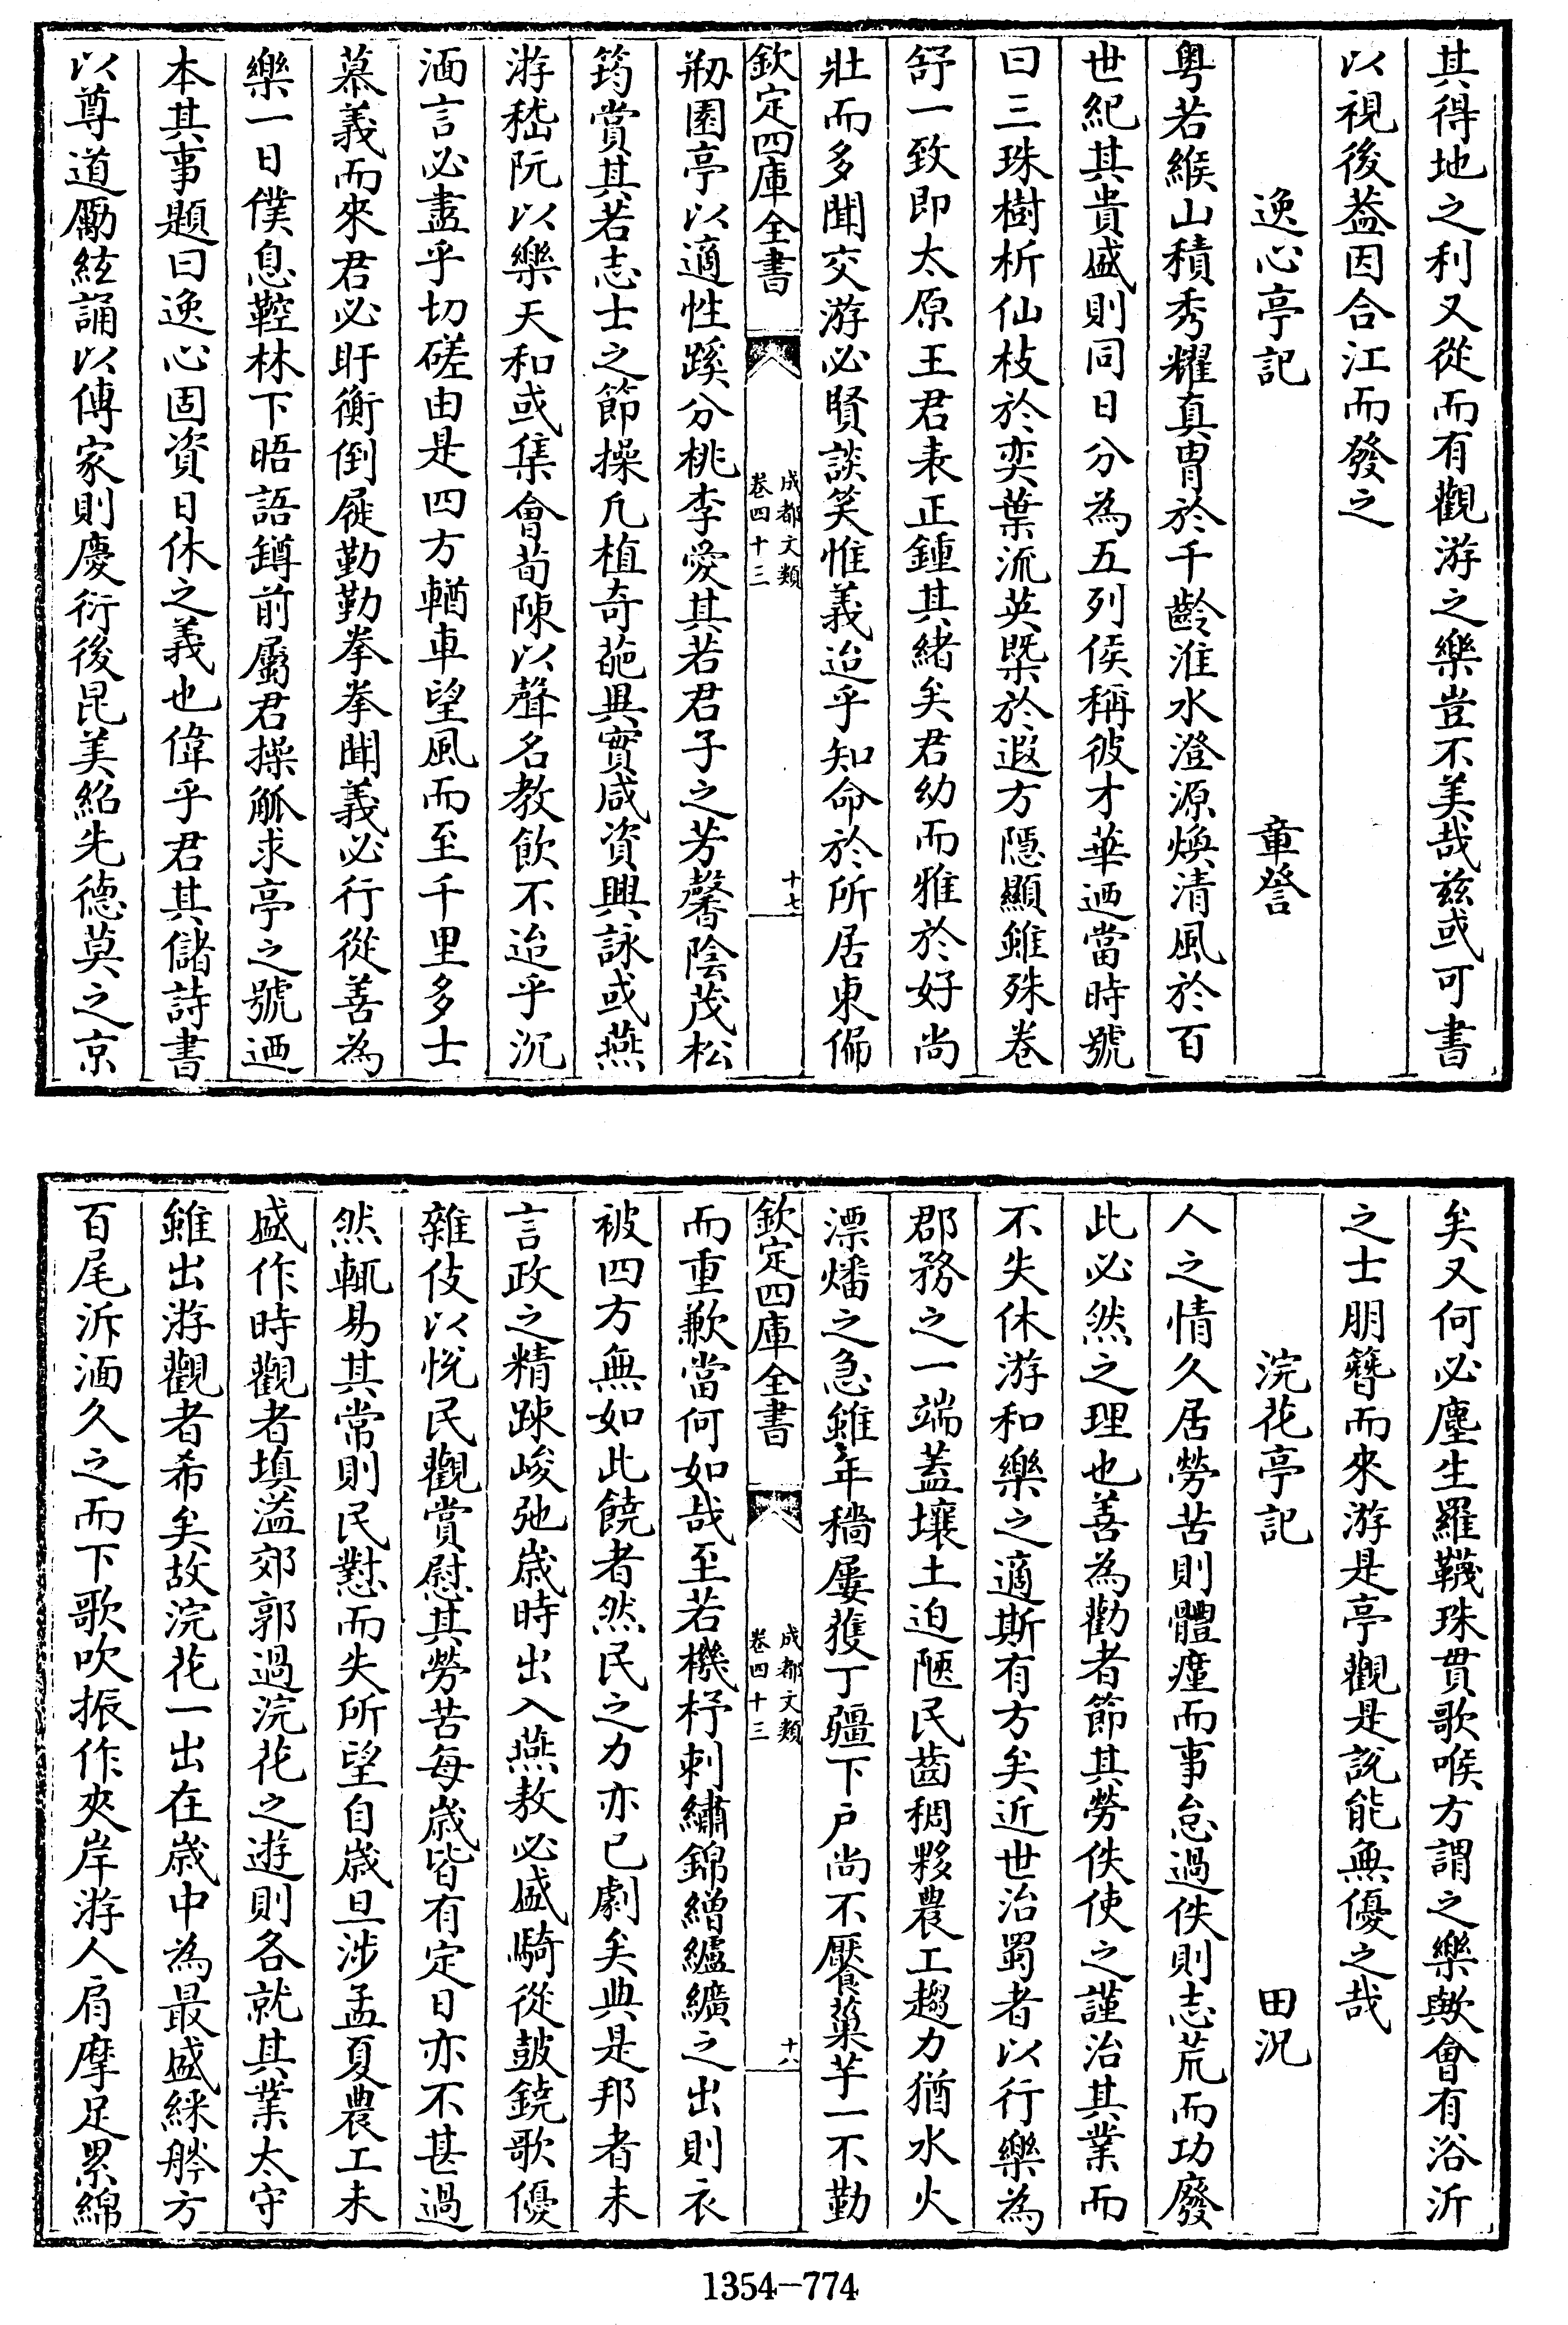 其得地之利又從而有觀游之樂豈不美哉兹或可書
以視後葢因合江而發之
逸心亭記　章詧
粤若緱山積秀耀真胄於千齡淮水澄源煥清風於百
世紀其貴盛則同日分為五列侯稱彼才華迺當時號
曰三珠樹析仙枝於奕葉流英槩於遐方隱顯雖殊卷
舒一致即太原王君表正鍾其緒矣君幼而雅於好尚
壯而多聞交游必賢談笑惟義迨乎知命於所居東偏
欽定四庫全書　成都文類　卷四十三　十七
剏園亭以適性蹊分桃李愛其若君子之芳馨陰茂松
筠賞其若志士之節操凡植奇葩異實咸資興詠或燕
游嵇阮以樂天和或集會荀陳以聲名教飲不迨乎沉
湎言必盡乎切磋由是四方輶車望風而至千里多士
慕義而來君必盱衡倒屣勤勤拳拳聞義必行從善為
樂一日僕息鞚林下晤語罇前屬君操觚求亭之號迺
本其事題曰逸心固資日休之義也偉乎君其儲詩書
以尊道勵絃誦以傳家則慶衍後昆美紹先德莫之京
矣又何必塵生羅韈珠貫歌喉方謂之樂歟會有浴沂
之士朋簪而來游是亭觀是說能無優之哉
浣花亭記　田況
人之情久居勞苦則體瘽而事怠過佚則志荒而功廢
此必然之理也善為勸者節其勞佚使之謹治其業而
不失休游和樂之適斯有方矣近世治蜀者以行樂為
郡務之一端蓋壤土迫陿民齒稠夥農工趨力猶水火
漂燔之急雖年穡屢獲丁疆下户尚不饜菓芋一不勤
欽定四庫全書　成都文類　卷四十三　十八
而重歉當何如哉至若機杼刺繡錦繒纑纊之出則衣
被四方無如此饒者然民之力亦已劇矣典是邦者未
言政之精踈峻弛歲時出入燕敖必盛騎從鼓鐃歌優
雜伎以悅民觀賞慰其勞苦每歲皆有定日亦不甚過
然輒易其常則民懟而失所望自歲旦涉孟夏農工未
盛作時觀者填溢郊郭過浣花之遊則各就其業太守
雖出游觀者希矣故浣花一出在歲中為最盛綵艂方
百尾泝湎久之而下歌吹振作夾岸游人肩摩足累綿
1354-774